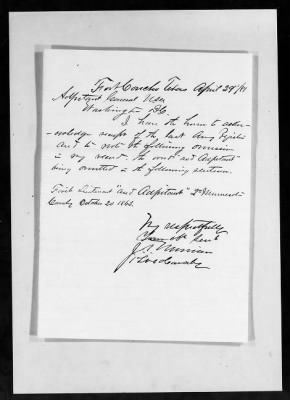 Fort Concho Texas April 29/81
Adjutant General USA
Washington D.C.
I have the honor to ackn-
owledge receipt of the last Army Register
and to note the following omission
in my record the word "and Adjutant"
being omitted in the following sentence.
First Lieutenant "and Adjutant" 2d
Cavalry October 20 1863.
Very respectfully
Your obt Servt
J.